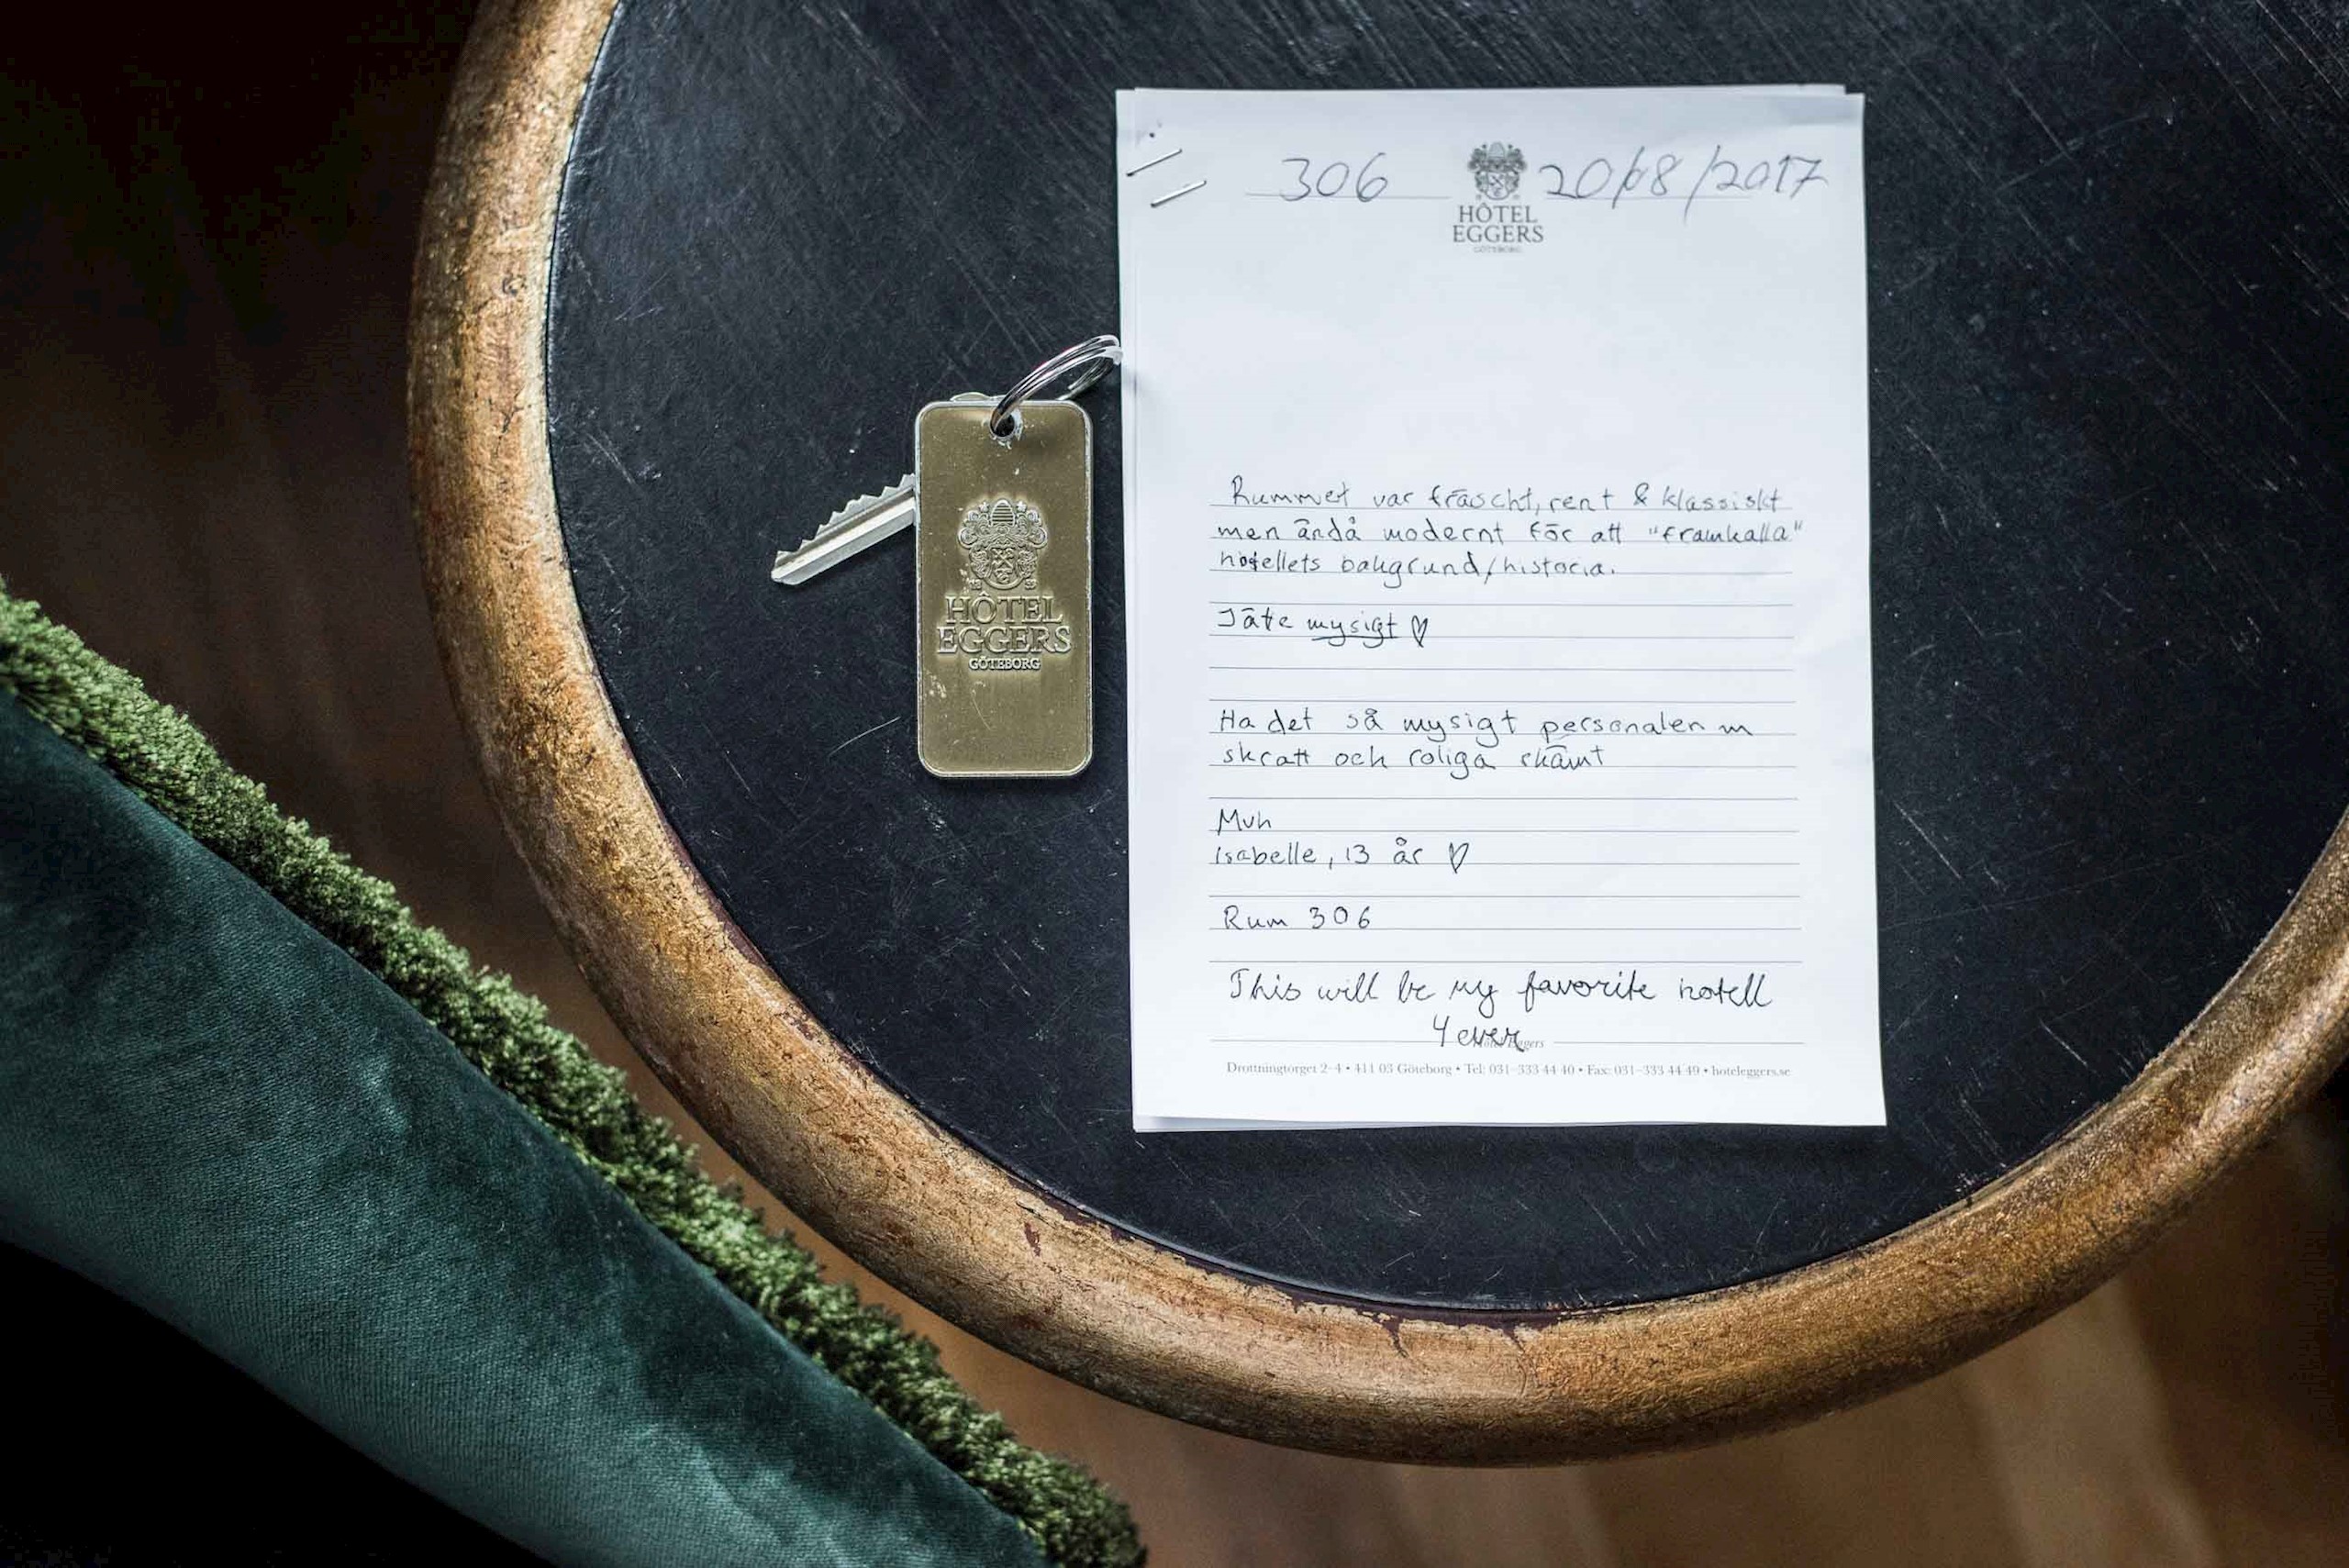 306 20/08/2017
HÔTEL
EGGERS
GÖTEBORG
Rummet var fräscht, rent & klassiskt
men ändå modernt för att "framkalla"
hotellets bakgrund/historia.
Jäte mysigt ♡
Ha det så mysigt personalen m
skratt och roliga skämt
Mvh
Isabelle, 13 år ♡
Rum 306
This will be my favorite hotell
4 ever
Hôtel Eggers
Drottningtorget 2-4 • 411 03 Göteborg • Tel: 031-333 44 40 • Fax: 031-333 44 49 • hoteleggers.se
HÔTEL
EGGERS
GÖTEBORG